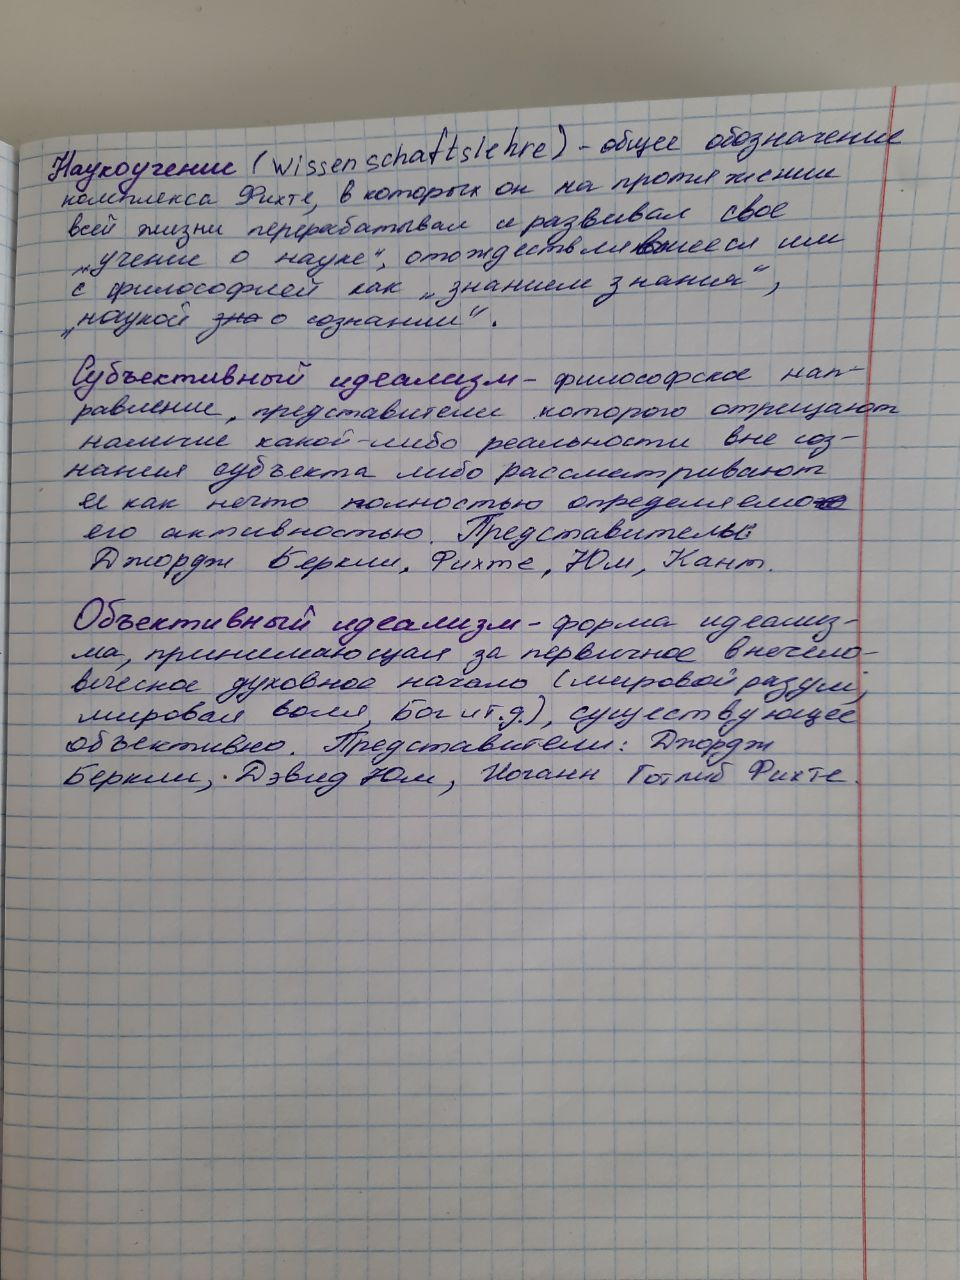 Наукоучение (Wissenschaftslehre) - общее обозначение
комплекса Фихте, в которых он на протяжении
всей жизни перерабатывал и развивал свое
„учение о науке“, отождествлявшееся им
с философией как „знанием знания“,
„наукой зна о сознании“.
Субъективный идеализм - философское нап-
равление, представители которого отрицают
наличие какой-либо реальности вне соз-
нания субъекта либо рассматривают
её как нечто полностью определяемо
его активностью. Представители:
Джордж Беркли, Фихте, Юм, Кант.
Объективный идеализм - форма идеализ-
ма, принимающая за первичное внечело-
веческое духовное начало (мировой разум,
мировая воля, Бог и т.д.), существующее
объективно. Представители: Джордж
Беркли, Дэвид Юм, Иоганн Готлиб Фихте.